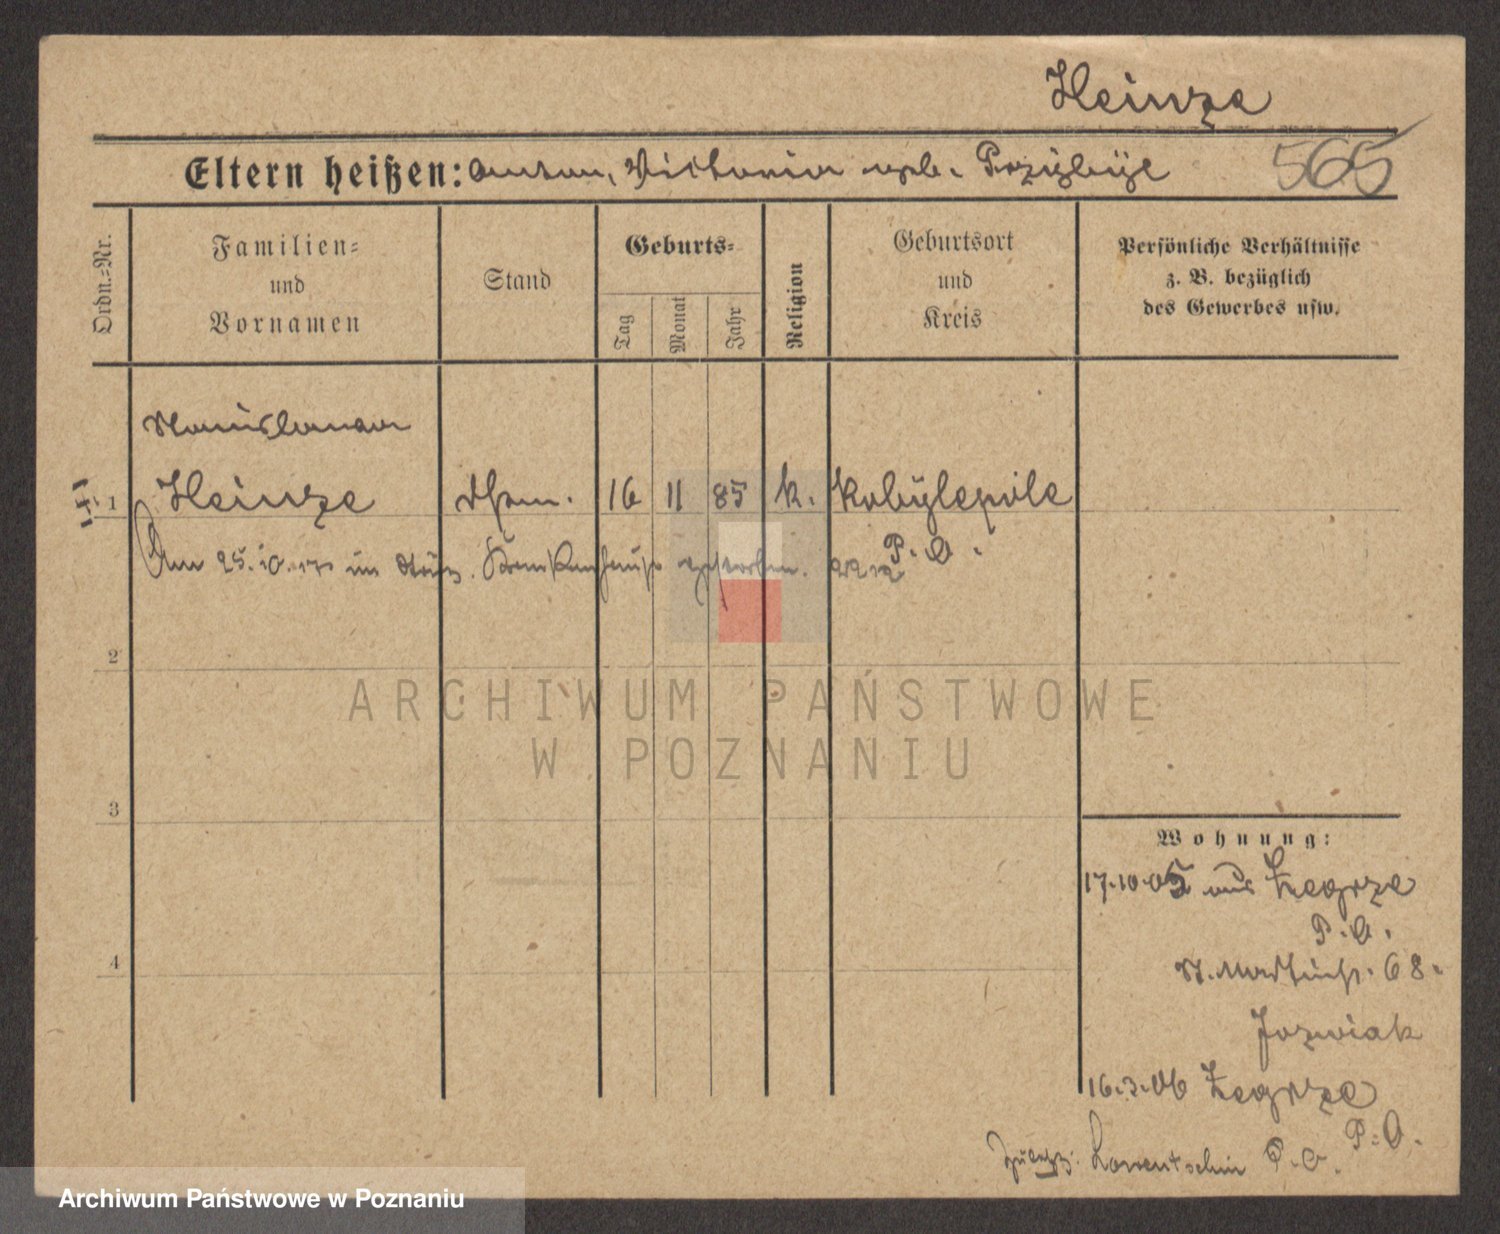 Heinze
Eltern heißen: Anton, Victoria geb. Przybyl
565
Ordn.-Nr.
Familien-
und
Vornamen
Stand
Geburts-
Tag
Monat
Jahr
Religion
Geburtsort
und
Kreis
Persönliche Verhältnisse
z. B. bezüglich
des Gewerbes usw.
Stanislaus
1 Heinze 16 11 85 k. Kobylepole
P. O.
Am 25.10.17 im städt. Krankenhause gestorben.
2
ARCHIWUM PAŃSTWOWE
W POZNANIU
3
Wohnung:
17.10.05 aus Zegrze
P. O.
4
68.
Jozwiak
16.3.06 Zegrze
P. O.
zuletzt: Lorentschin P. O.
Archiwum Państwowe w Poznaniu